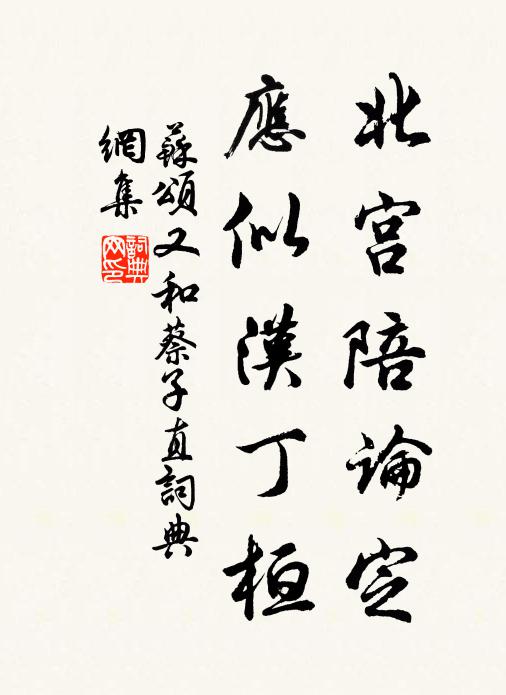 北宮陪論定
應似漢丁桓
蘇頌又和蔡子直詞典
網集
詞典網印